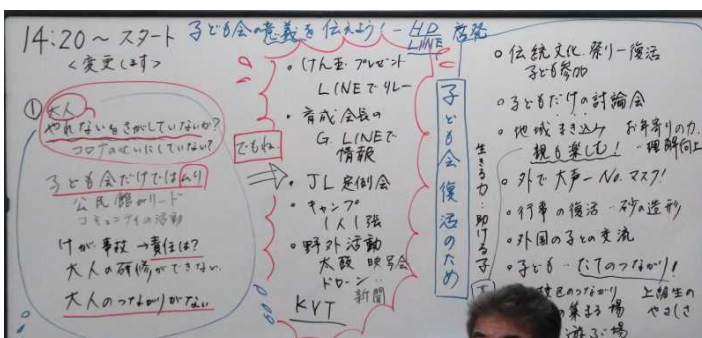 14:20〜スタート
<変更します>
子ども会の意義を伝えよう
HP
LINE
啓発
①大人
やれないをさがしていないか?
コロナのせいにしていない?
子ども会だけではムリ
公民館がリード
コミュニティの活動
けが 事故→責任は?
大人の研修ができない
大人のつながりがない
でもね
・けん玉プレゼント
LINEでリレー
・育成会長の
G.LINEで
情報
・JL定例会
・キャンプ
1人1張
・野外活動
太鼓 映写会
ドローン
新聞
KVT
子ども会復活のため
生きる力:助ける子
○伝統文化.祭り-復活
子ども参加
○子どもだけの討論会
○地域まき込み お年寄りの力
親も楽しむ! -理解向上
・外で大声-No.マスク!
・行事の復活‥砂の造形
・外国の子との交流
・子ども‥たてのつながり!
のつながり 上級生の
集まる場 やさしさ
遊ぶ場